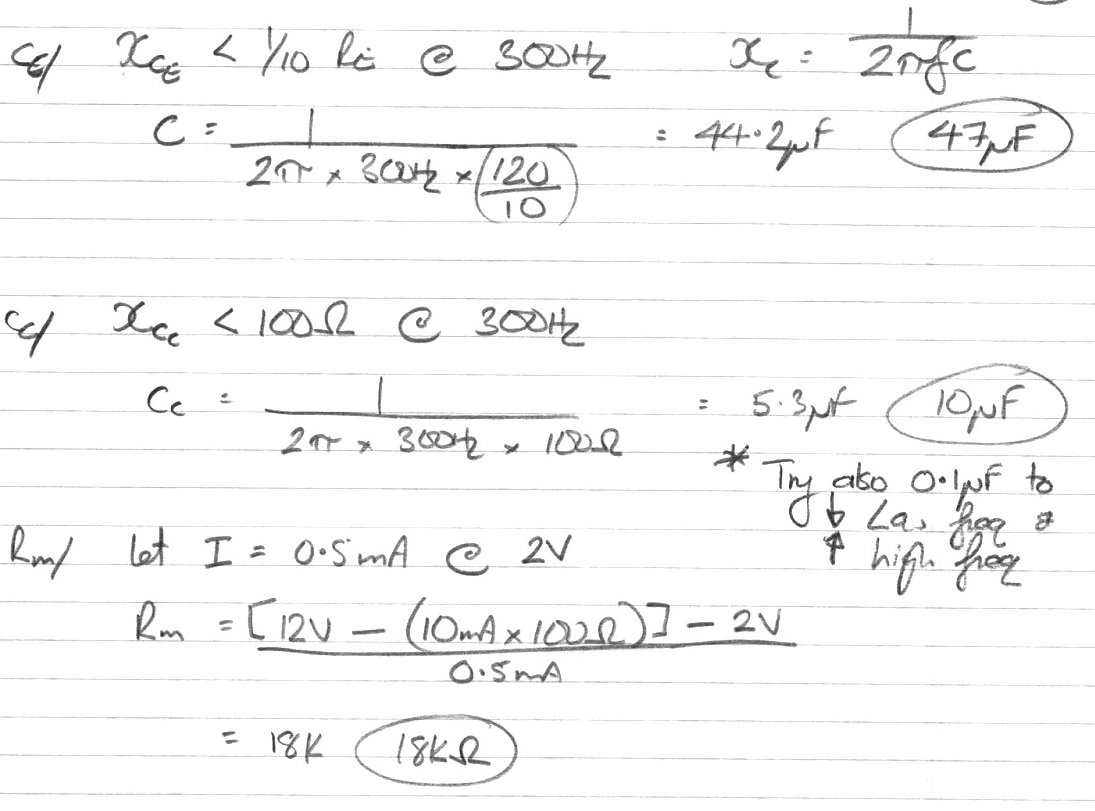 C_E/ X_CE < 1/10 R_E @ 300Hz X_C = 1/2πfC
C = 1/2π x 300Hz x (120/10) = 44.2μF 47μF
C_C/ X_Cc < 100Ω @ 300Hz
C_C = 1/2π x 300Hz x 100Ω = 5.3μF 10μF
* Try also 0.1μF to
↓ freq &
↑ high freq
Rm/ let I = 0.5mA @ 2V
Rm = [12V - (10mA x 100Ω)] - 2V/0.5mA
= 18K 18KΩ